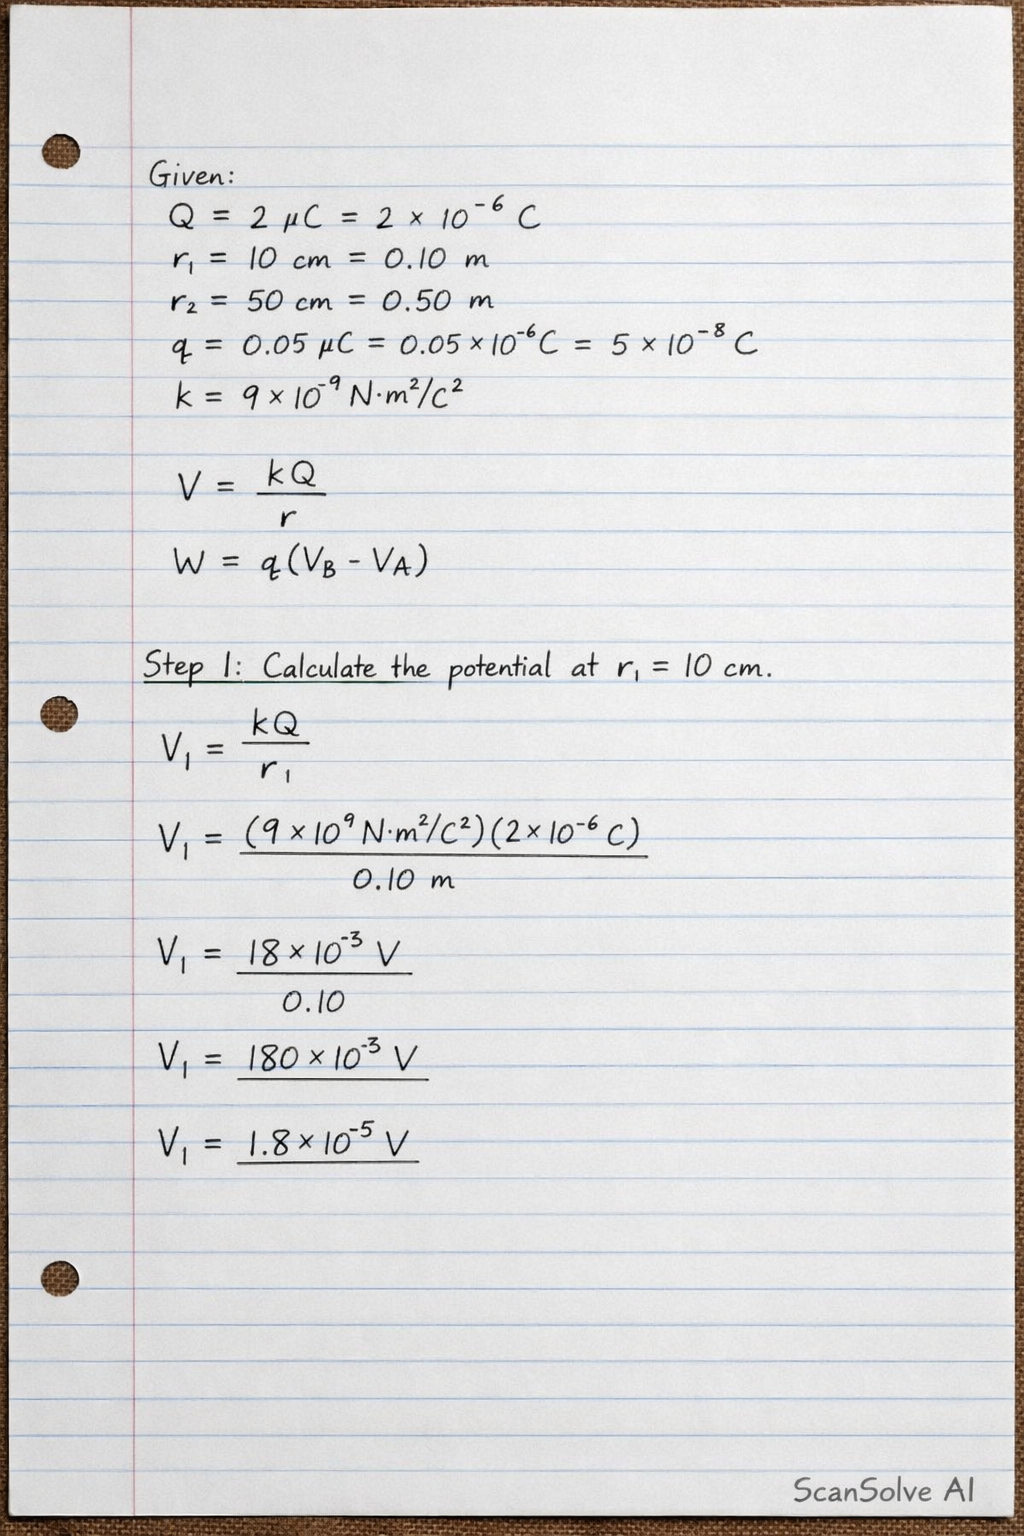 Given:
Q = 2 μC = 2 × 10⁻⁶ C
r₁ = 10 cm = 0.10 m
r₂ = 50 cm = 0.50 m
q = 0.05 μC = 0.05 × 10⁻⁶ C = 5 × 10⁻⁸ C
k = 9 × 10⁻⁹ N·m²/C²
V = kQ / r
W = q(V_B - V_A)
Step 1: Calculate the potential at r₁ = 10 cm.
V₁ = kQ / r₁
V₁ = (9 × 10⁹ N·m²/C²)(2 × 10⁻⁶ C) / 0.10 m
V₁ = 18 × 10⁻³ V / 0.10
V₁ = 180 × 10⁻³ V
V₁ = 1.8 × 10⁻⁵ V
ScanSolve AI